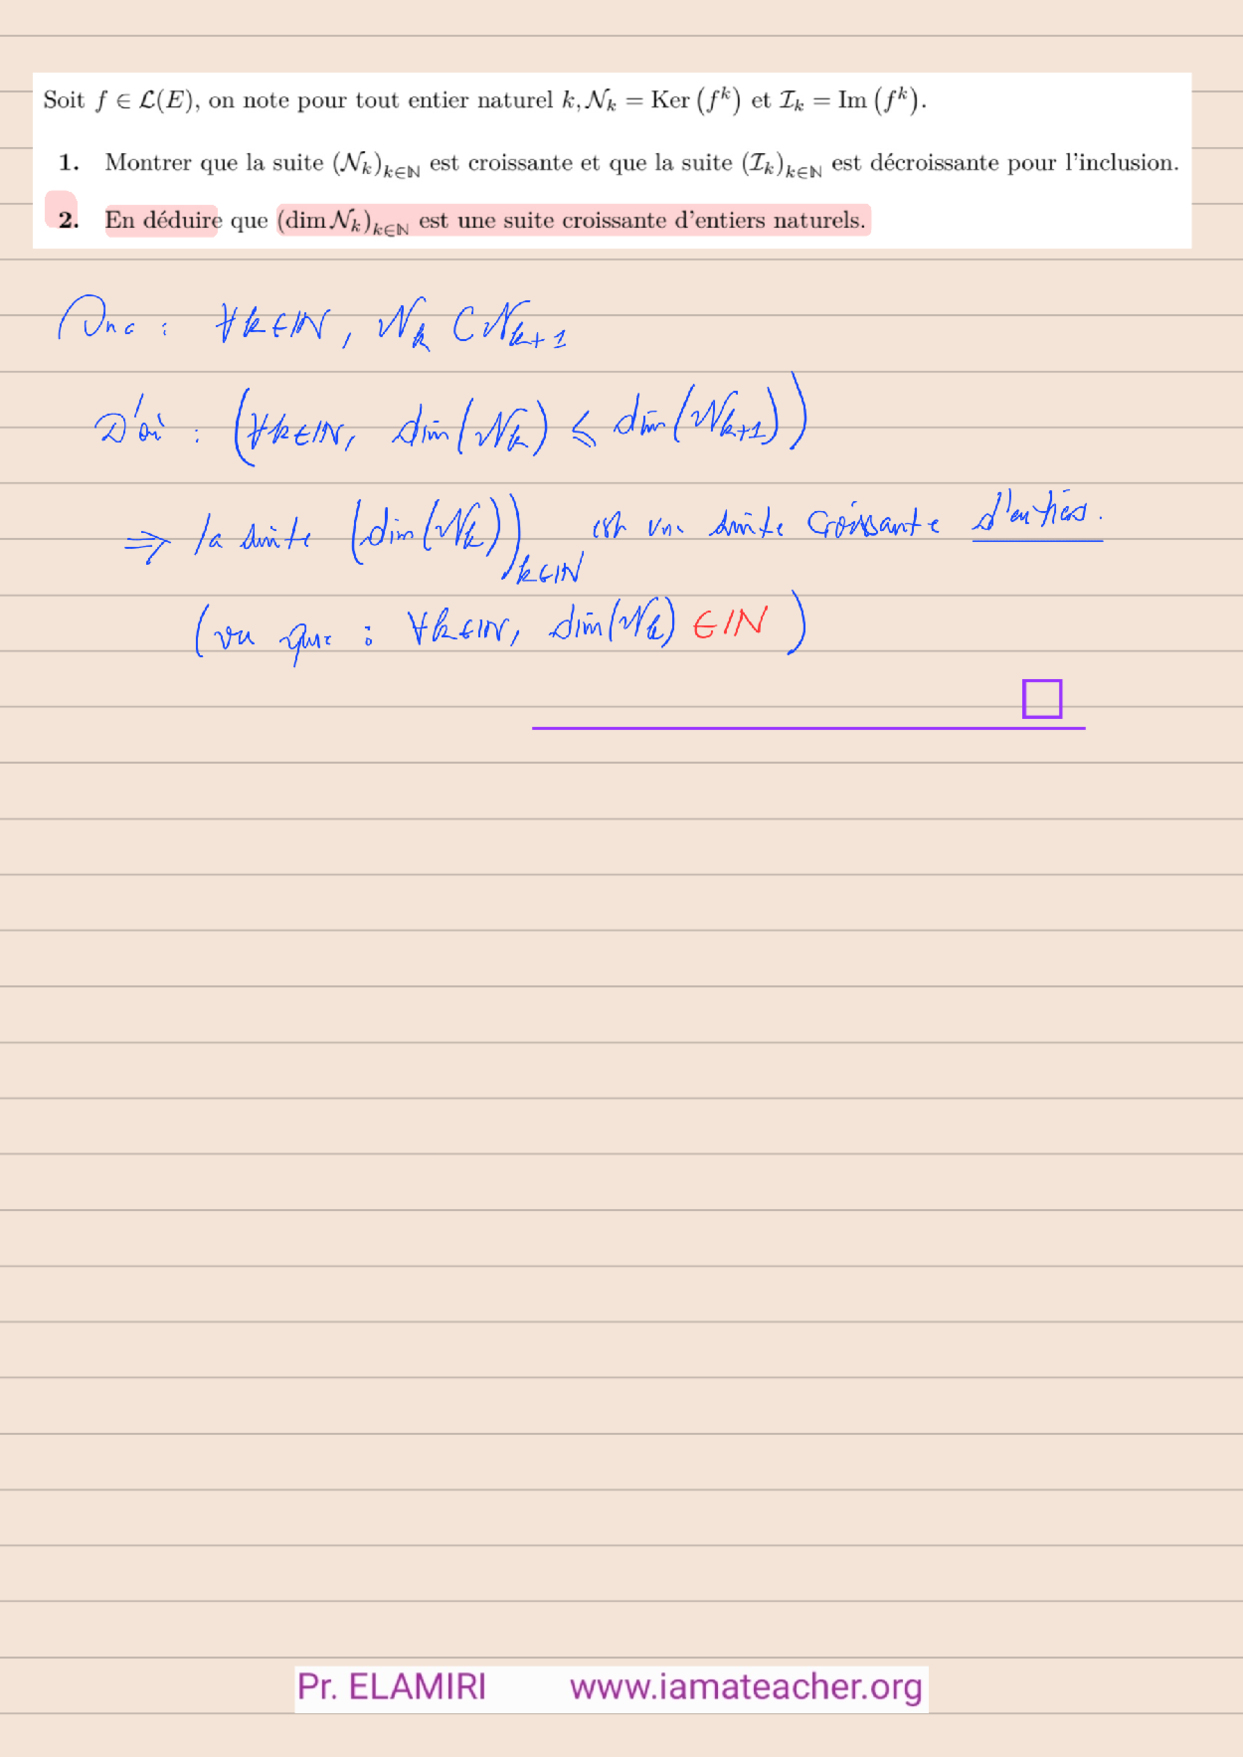 Soit f ∈ ℒ(E), on note pour tout entier naturel k, 𝒩ₖ = Ker (fᵏ) et ℐₖ = Im (fᵏ).
1. Montrer que la suite (𝒩ₖ)ₖ∈ℕ est croissante et que la suite (ℐₖ)ₖ∈ℕ est décroissante pour l'inclusion.
2. En déduire que (dim 𝒩ₖ)ₖ∈ℕ est une suite croissante d'entiers naturels.
On a : ∀k∈ℕ, 𝒩ₖ ⊂ 𝒩ₖ₊₁
D'où : (∀k∈ℕ, dim(𝒩ₖ) ⩽ dim(𝒩ₖ₊₁))
⇒ la suite (dim(𝒩ₖ))ₖ∈ℕ est une suite croissante d'entiers.
(vu que : ∀k∈ℕ, dim(𝒩ₖ) ∈ ℕ)
□
Pr. ELAMIRI www.iamateacher.org